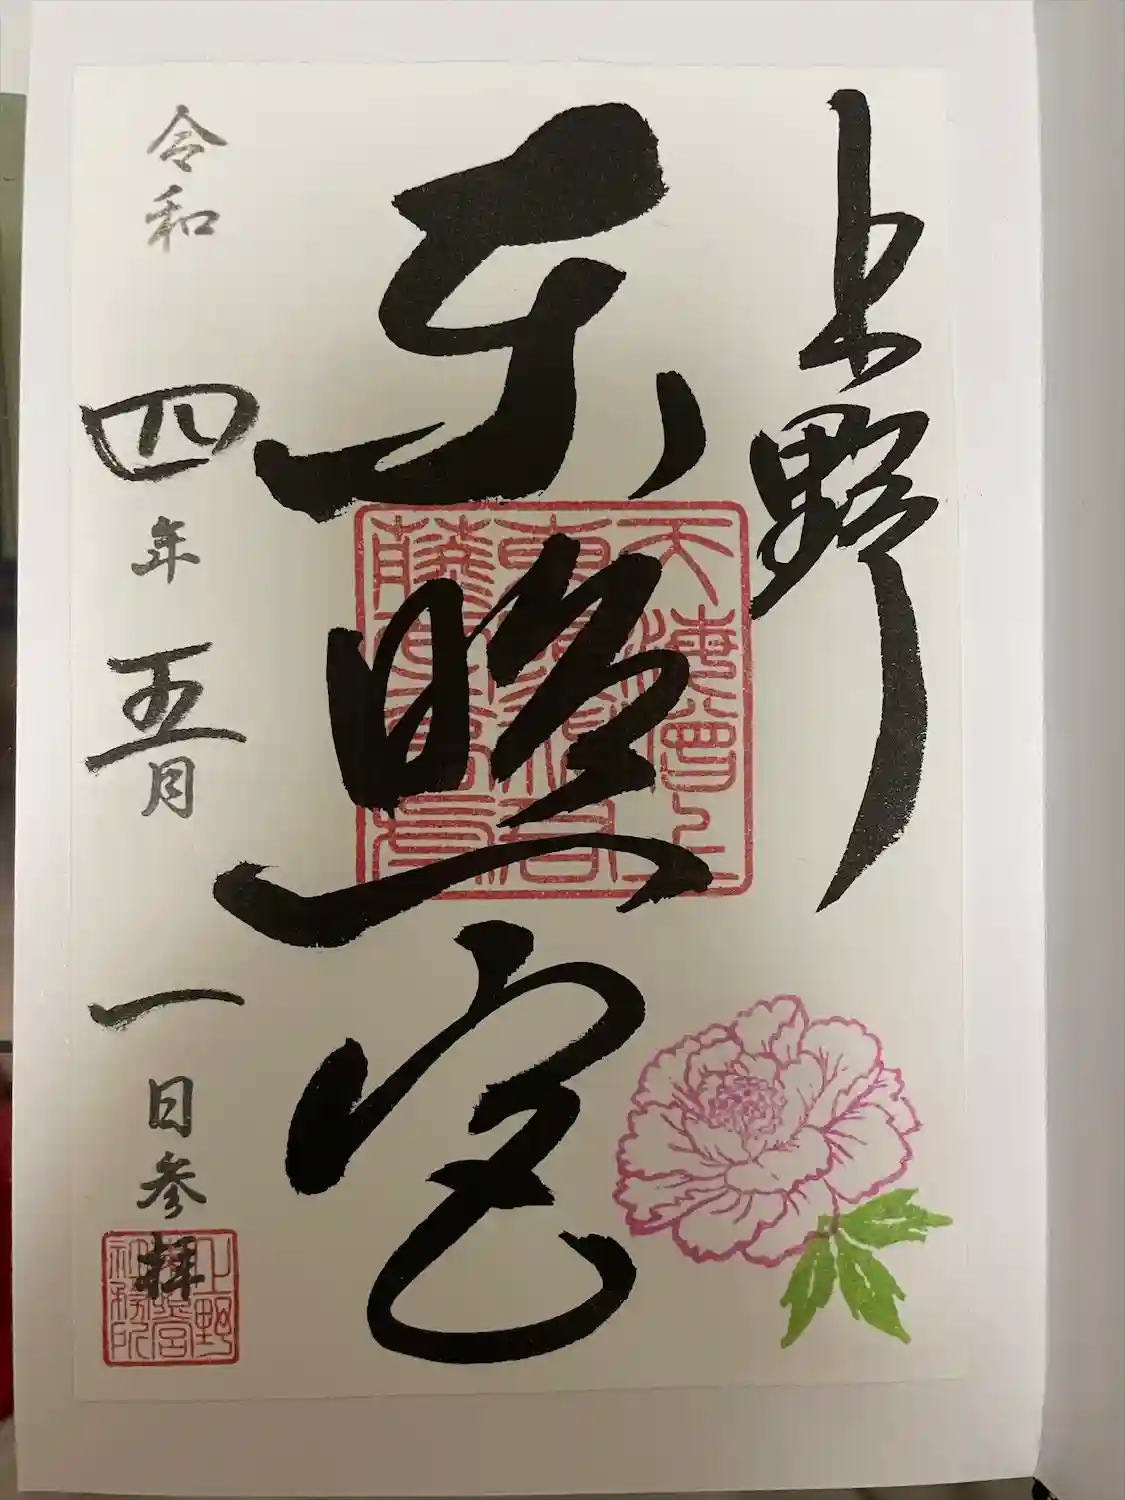 上野
東照宮
令和四年五月一日参拝
上野
東照宮
社務所